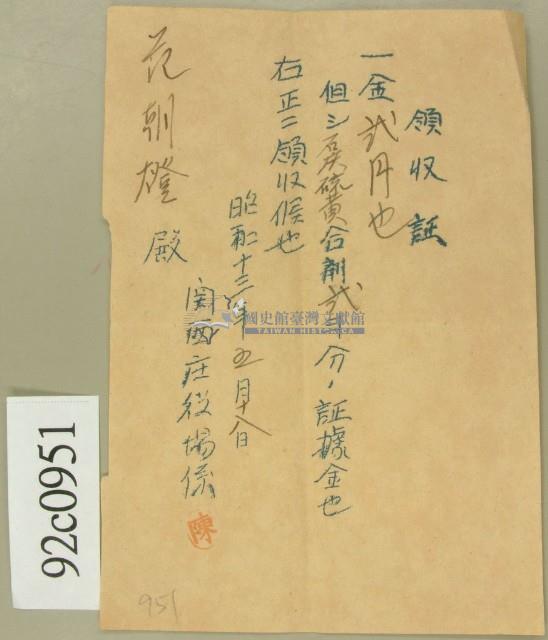 領収証
一金弐円也
但シ石灰硫黄合剤弐斗分,証據金也
右正ニ領収候也
昭和十三年五月十八日
関西庄役場係
陳
范朝燈殿
國史館臺灣文獻館
TAIWAN HISTORICA
92c0951
951